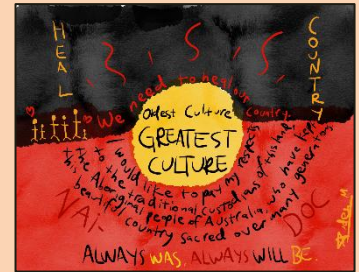 HEAL
COUNTRY
We need to heal our country.
Oldest Culture
GREATEST
CULTURE
I would like to pay my respects
to the traditional custodians of this land
the Aboriginal people of Australia, who have kept
this beautiful country sacred over many generations
NAi-
DOC
ALWAYS WAS, ALWAYS WILL BE.